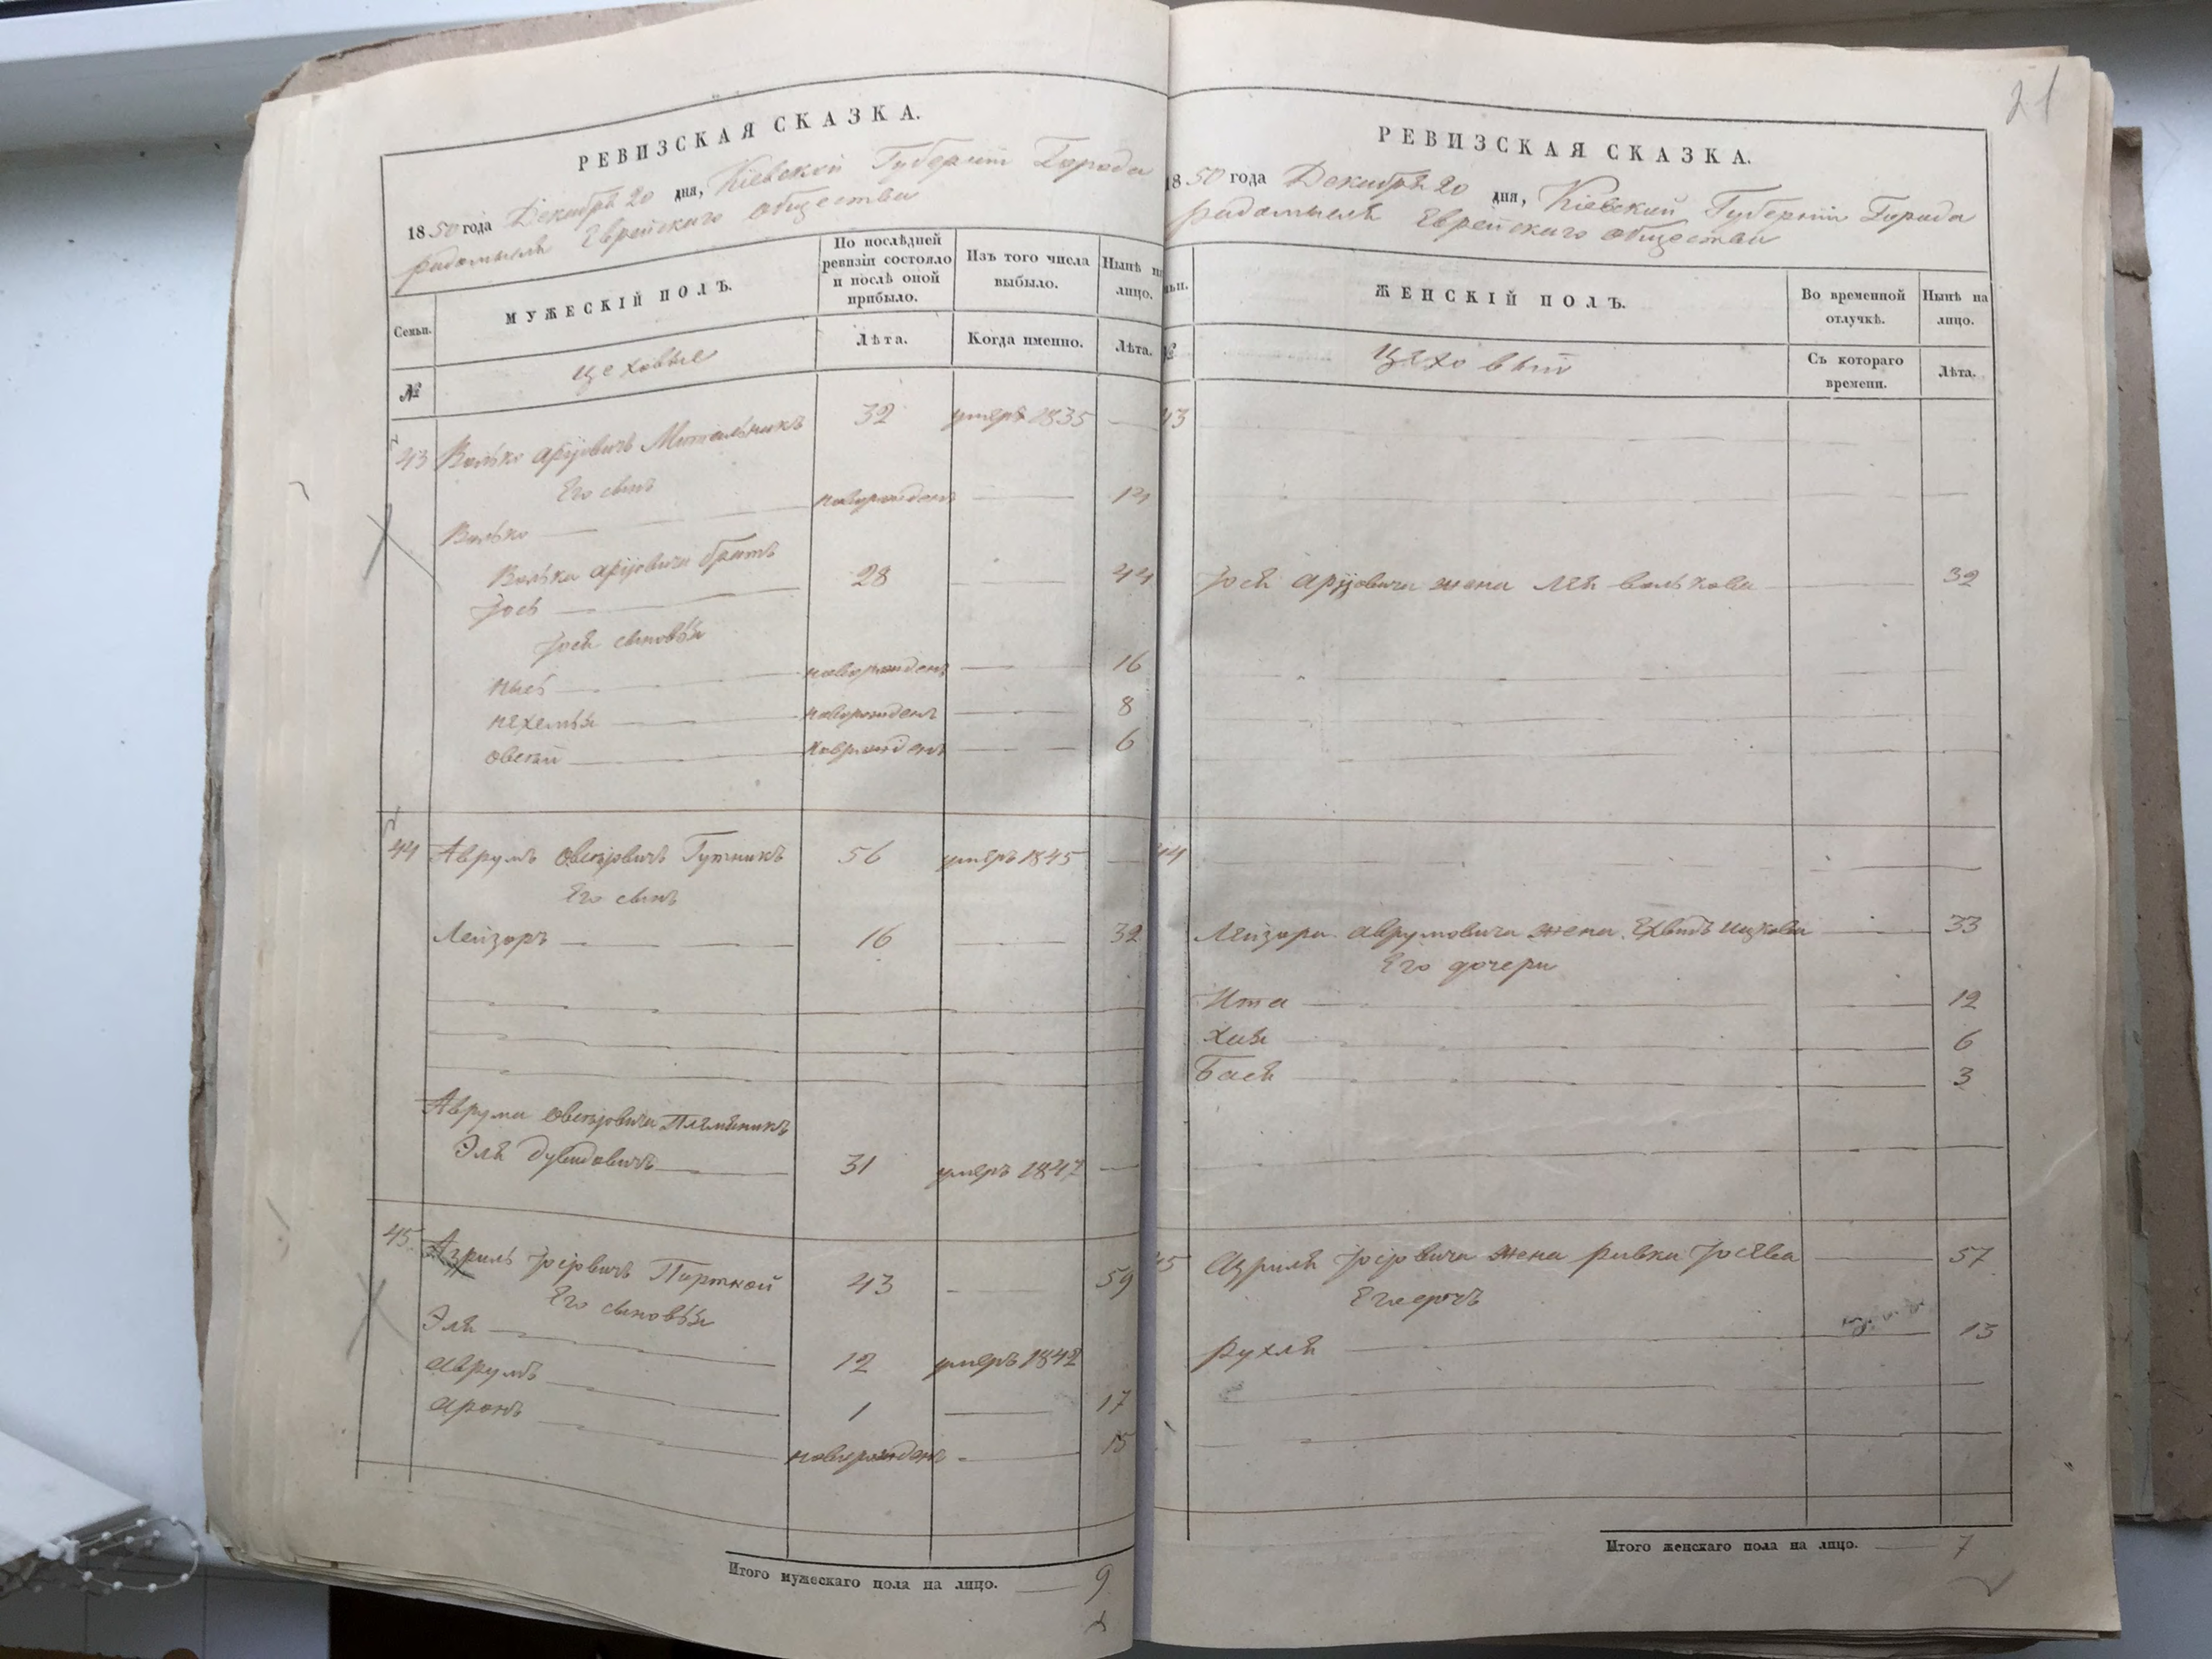 РЕВИЗСКАЯ СКАЗКА.
1850 года Декабря 20 дня, Кіевской Губерніи Города
Радомысля Еврейскаго общества
Семьи.
МУЖЕСКІЙ ПОЛЪ.
По послѣдней ревизіи состояло и послѣ оной прибыло.
Изъ того числа выбыло.
Нынѣ на лицо.
№
цеховые
Лѣта.
Когда именно.
Лѣта.
43 Волько Аріовичъ 32 умеръ 1835 —
Его сынъ
Волько — новорожденъ — 14
Волька Аріовича братъ
Іось — 28 — 44
Іося сыновья
новорожденъ — 16
Нехемья — новорожденъ — 8
Овсей — новорожденъ — 6
44 Аврумъ Овсіовичъ Гутникъ 56 умеръ 1845 —
Его сынъ
Лейзоръ — 16 — 32
Аврума Овсіовича Племяникъ
Эля Дувидовичъ — 31 умеръ 1847 —
45 Азриль Іосіовичъ Портной 43 — 59
Его сыновья
Эля — 12 умеръ 1842
Аврумъ — 1 — 17
Аронъ — новорожденъ — 15
Итого мужескаго пола на лицо. — 9
21
РЕВИЗСКАЯ СКАЗКА.
1850 года Декабря 20 дня, Кіевской Губерніи Города
Радомысля Еврейскаго общества
ЖЕНСКІЙ ПОЛЪ.
Во временной отлучкѣ.
Нынѣ на лицо.
№
Цеховыи
Съ котораго времени.
Лѣта.
43
Іося Аріовича жена Лея Волькова — 32
44
Лейзора Аврумовича жена Ицкова — 33
Его дочери
Ита — 12
Хая — 6
Бася — 3
45 Азриля Іосіовича жена Ривка Іосева — 57
Рухля — 13
Итого женскаго пола на лицо. — 7